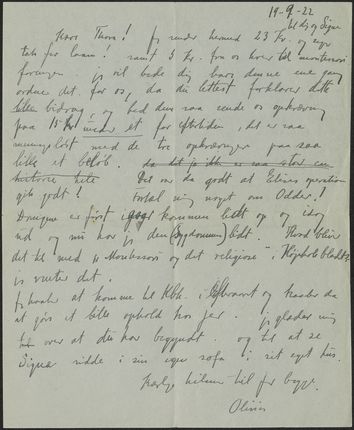 19-9-22
til dig og Signe
Kære Thora! Jeg sender hermed 23 Kr. og siger
tak for laanet! samt 3 kr. fra os hver til montessori
foreningen. Jeg vil bede dig bare denne ene gang
ordne det for os, da du lettest forklarer dette
lille bidrag, og bed dem saa sende os opkrævning
paa 15 kr for eftertiden, det er saa
meningsløst med de to opkrævninger paa saa
lille et beløb. da det jo ikke er saa stor en
historie hele Det var da godt at Elines operation
gik godt! Fortæl mig noget om Odder!
Drengene er først kommen lidt op og idag
ud og nu har jeg den (sygdommen) lidt. Hvad blev
det til med "Montessori og det religiøse" i Højskolebladet
jeg venter det.
Jeg haaber at komme til Kbh. i Efteraaret og tænker da
at gøre et lille ophold hos jer. Jeg glæder mig
over at du har begyndt. og til at se
Signe sidde i sin egen sofa i sit eget hus.
Kærlig hilsen til jer begge.
Olivia